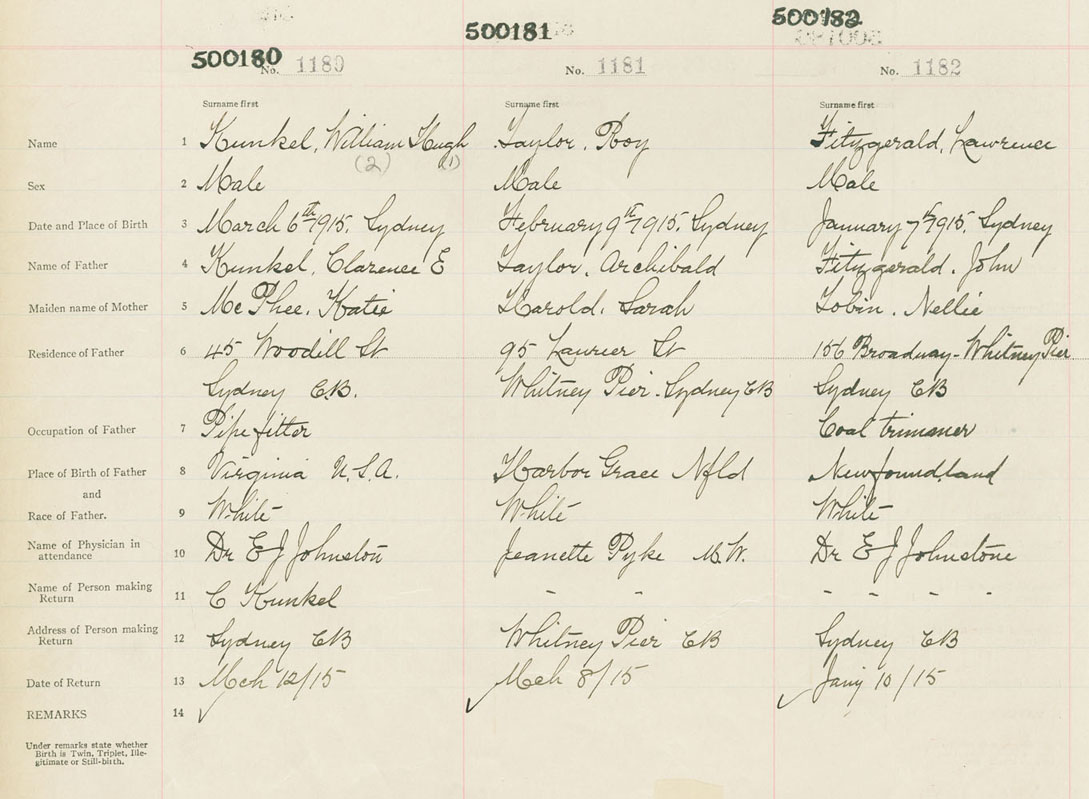 500180 500181 500182
No. 1180 No. 1181 No. 1182
Surname first Surname first Surname first
Name 1 Kunkel, William Hugh Taylor, Roy Fitzgerald, Lawrence
(2) (1)
Sex 2 Male Male Male
Date and Place of Birth 3 March 6th 1915, Sydney February 9th 1915, Sydney January 7th 1915, Sydney
Name of Father 4 Kunkel, Clarence E Taylor, Archibald Fitzgerald, John
Maiden name of Mother 5 McPhee, Katie Harold, Sarah Tobin, Nellie
Residence of Father 6 45 Woodill St 95 Laurier St 156 Broadway - Whitney Pier
Sydney C.B. Whitney Pier. Sydney CB Sydney CB
Occupation of Father 7 Pipe fitter Coal trimmer
Place of Birth of Father 8 Virginia U.S.A. Harbor Grace Nfld Newfoundland
and
Race of Father. 9 White White White
Name of Physician in
attendance 10 Dr E J Johnston Jeanette Pyke M.W. Dr E J Johnstone
Name of Person making
Return 11 C Kunkel - - - - - -
Address of Person making
Return 12 Sydney CB Whitney Pier CB Sydney CB
Date of Return 13 Mch 12/15 Mch 8/15 Jany 10/15
REMARKS 14
Under remarks state whether
Birth is Twin, Triplet, Ille-
gitimate or Still-birth.